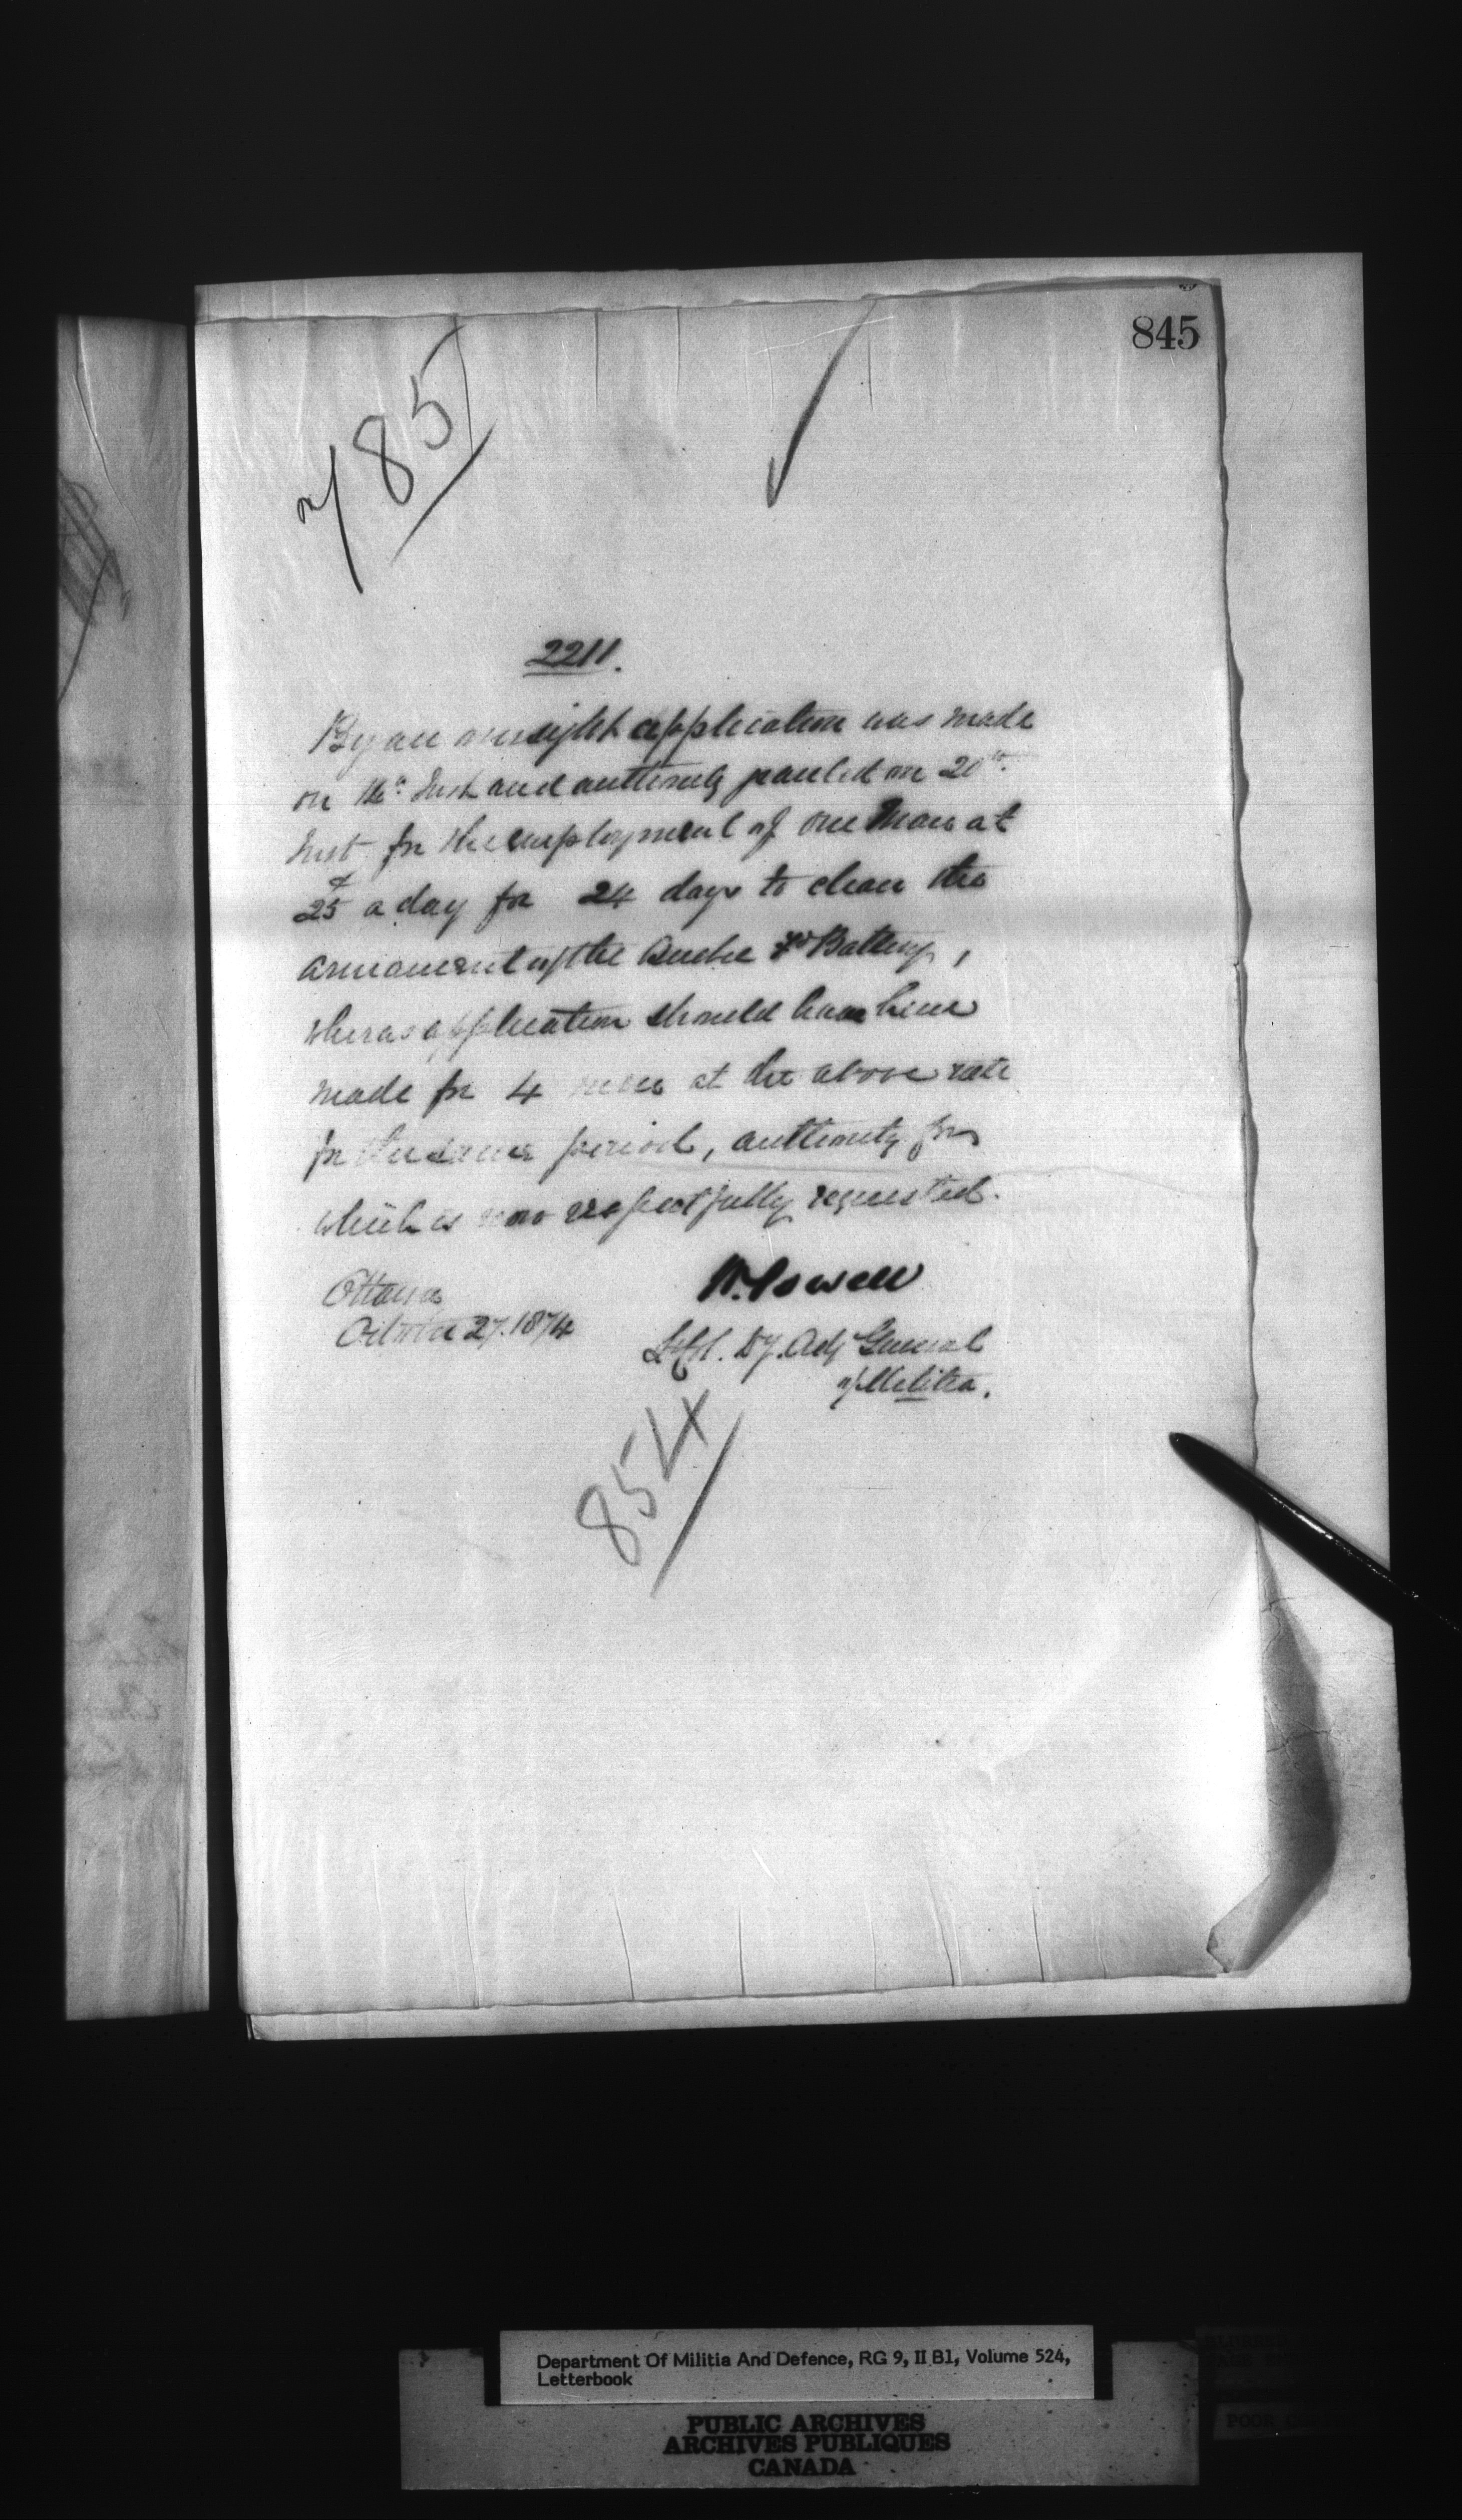 845
of 785
2211.
By an oversight application was made
on 16th Inst and authority granted on 20th
Inst for the employment of one Man at
25¢ a day for 24 days to clean the
armament of the Quebec Fd Battery,
wheras application should have been
made for 4 men at the above rate
for the same period, authority for
which is now respectfully requested.
Ottawa
October 27. 1874
W. Powell
Lt Col. Dy. Adj General
of Militia.
854
Department Of Militia And Defence, RG 9, II B1, Volume 524,
Letterbook
PUBLIC ARCHIVES
ARCHIVES PUBLIQUES
CANADA